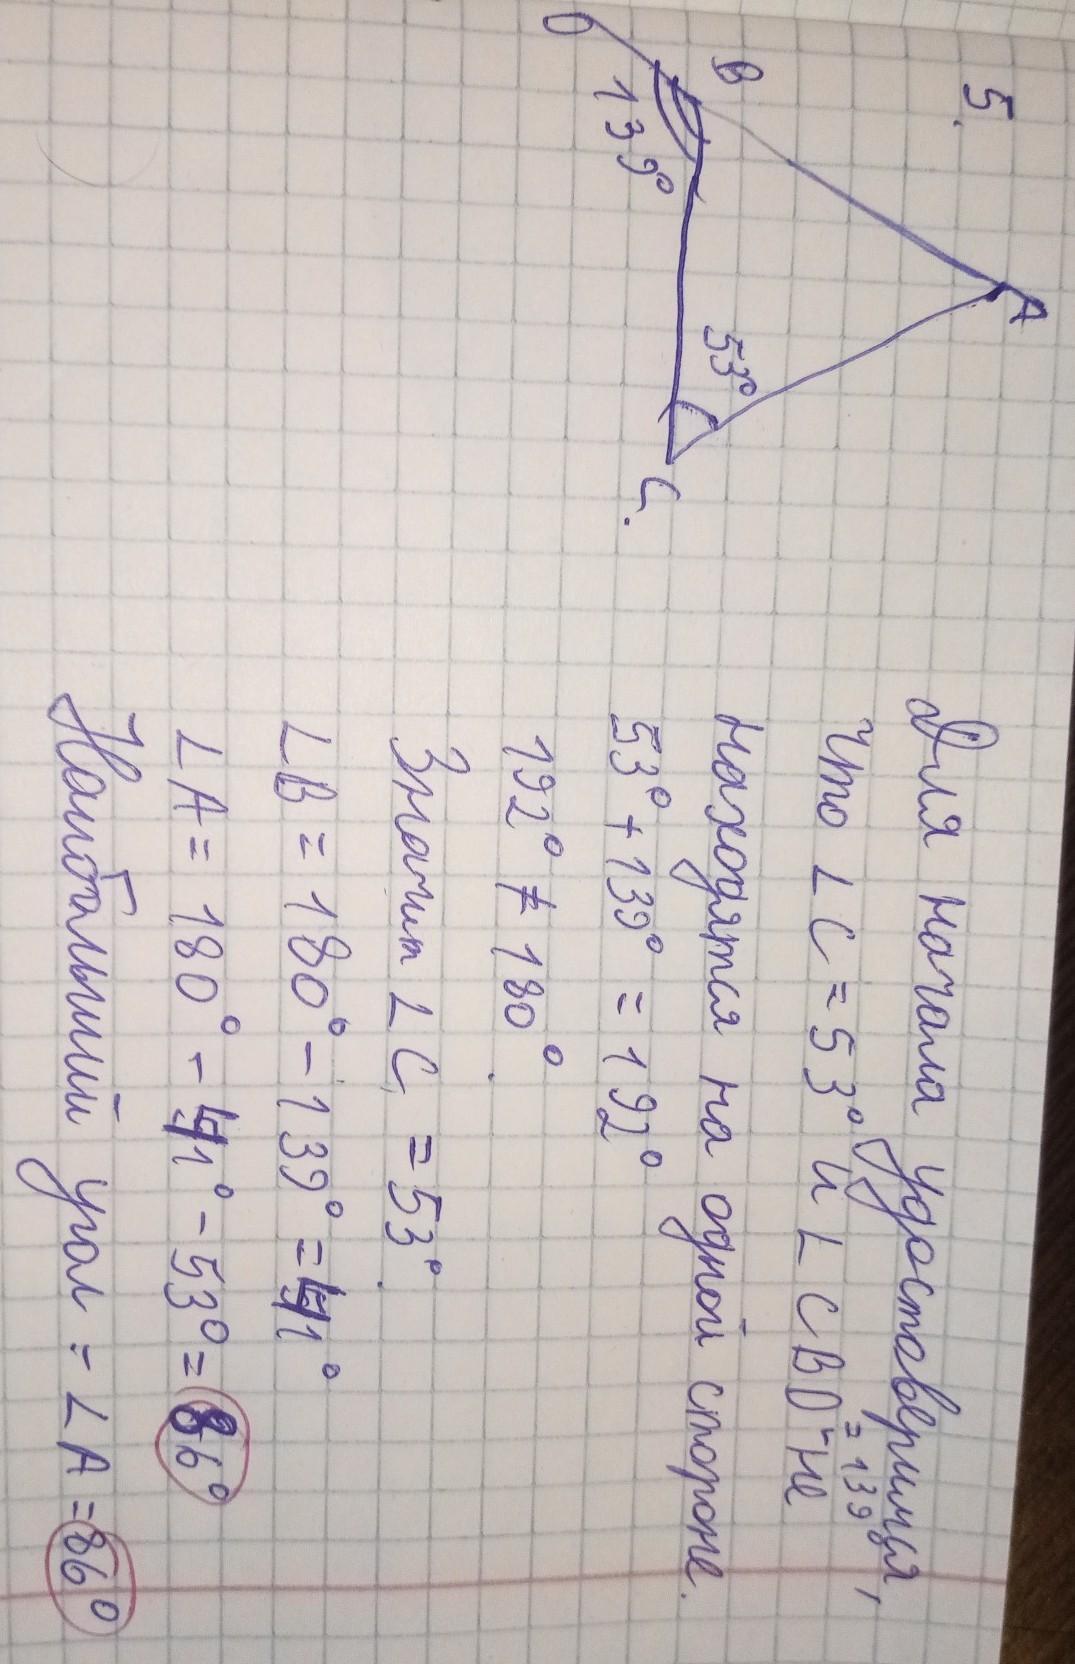 5.
A
B
D
139°
53°
C.
Для начала удостоверимся,
что ∠C = 53° и ∠CBD = 139° - не
находятся на одной стороне.
53° + 139° = 192°
192° ≠ 180°.
Значит ∠C = 53°.
∠B = 180° - 139° = 41°
∠A = 180° - 41° - 53° = 86°
Наибольший угол = ∠A = 86°